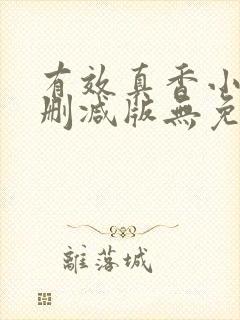 有效真香小
删减版無免
離落城